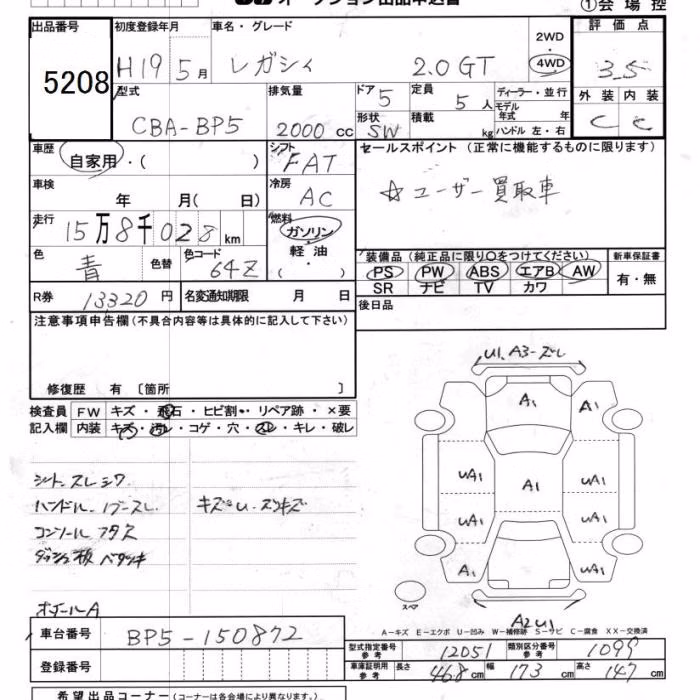 オークション出品申込書
①会場控
出品番号
5208
初度登録年月
H19 5月
車名・グレード
レガシィ 2.0GT
2WD
・
4WD
評価点
3.5
型式
CBA-BP5
排気量
2000 cc
ドア 5
定員
5 人
形状
SW
積載
kg
ディーラー・並行
モデル年式 年
ハンドル 左・右
外装 内装
C C
車歴
自家用・( )
シフト
FAT
セールスポイント (正常に機能するものに限ります)
☆ユーザー買取車
車検
年 月( 日)
冷房
AC
走行
15万8千028 km
燃料
ガソリン
軽油
( ・ )
色
青
色替
色コード
64Z
装備品 (純正品に限り○をつけてください)
PS PW ABS エアB AW
SR ナビ TV カワ
新車保証書
有・無
R券 13320 円
名変通知期限 月 日
後日品
注意事項申告欄 (不具合内容等は具体的に記入して下さい)
修復歴 有 〔箇所 〕
検査員記入欄
FW キズ・飛石・ヒビ割・リペア跡・×要
内装 キズ・汚レ・コゲ・穴・スレ・キレ・破レ
シート スレ シワ
ハンドル ノブ スレ キズ
コンソール フタ ス
ダッシュ板 ベタツキ
U1. A3-ズレ
A1
A1
UA1
A1
UA1
UA1
UA1
A1
A1
スペア
A2 U1
A-キズ E-エクボ U-凹み W-補修跡 S-サビ C-腐食 XX-交換済
車台番号 BP5-150872
登録番号
型式指定番号 参考 12051
類別区分番号 参考 1099
車庫証明用 参考 長さ 468 cm 幅 173 cm 高さ 147 cm
希望出品コーナー (コーナーは各会場により異なります。)